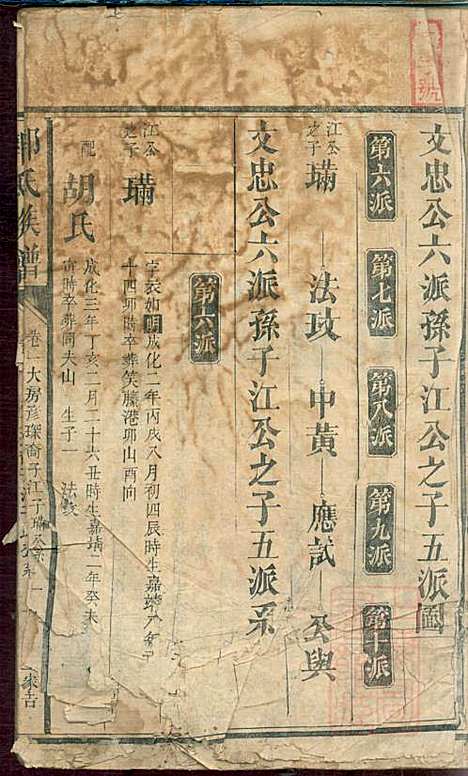 文忠公六派孫子江公之子五派圖
第六派 第七派 第八派 第九派 第十派
江公之子 㻿 法玟 中黃 應試 至與
文忠公六派孫子江公之子五派系
第六派
江公之子 㻿
字 明成化二年丙戌八月初四辰時生嘉靖
十四卯時卒葬笑藤港卯山酉向
配 胡氏
成化三年丁亥二月二十六丑時生嘉靖二年癸未
時卒葬同夫山 生子一 法玟
氏族譜
卷一大房彥琛裔子江